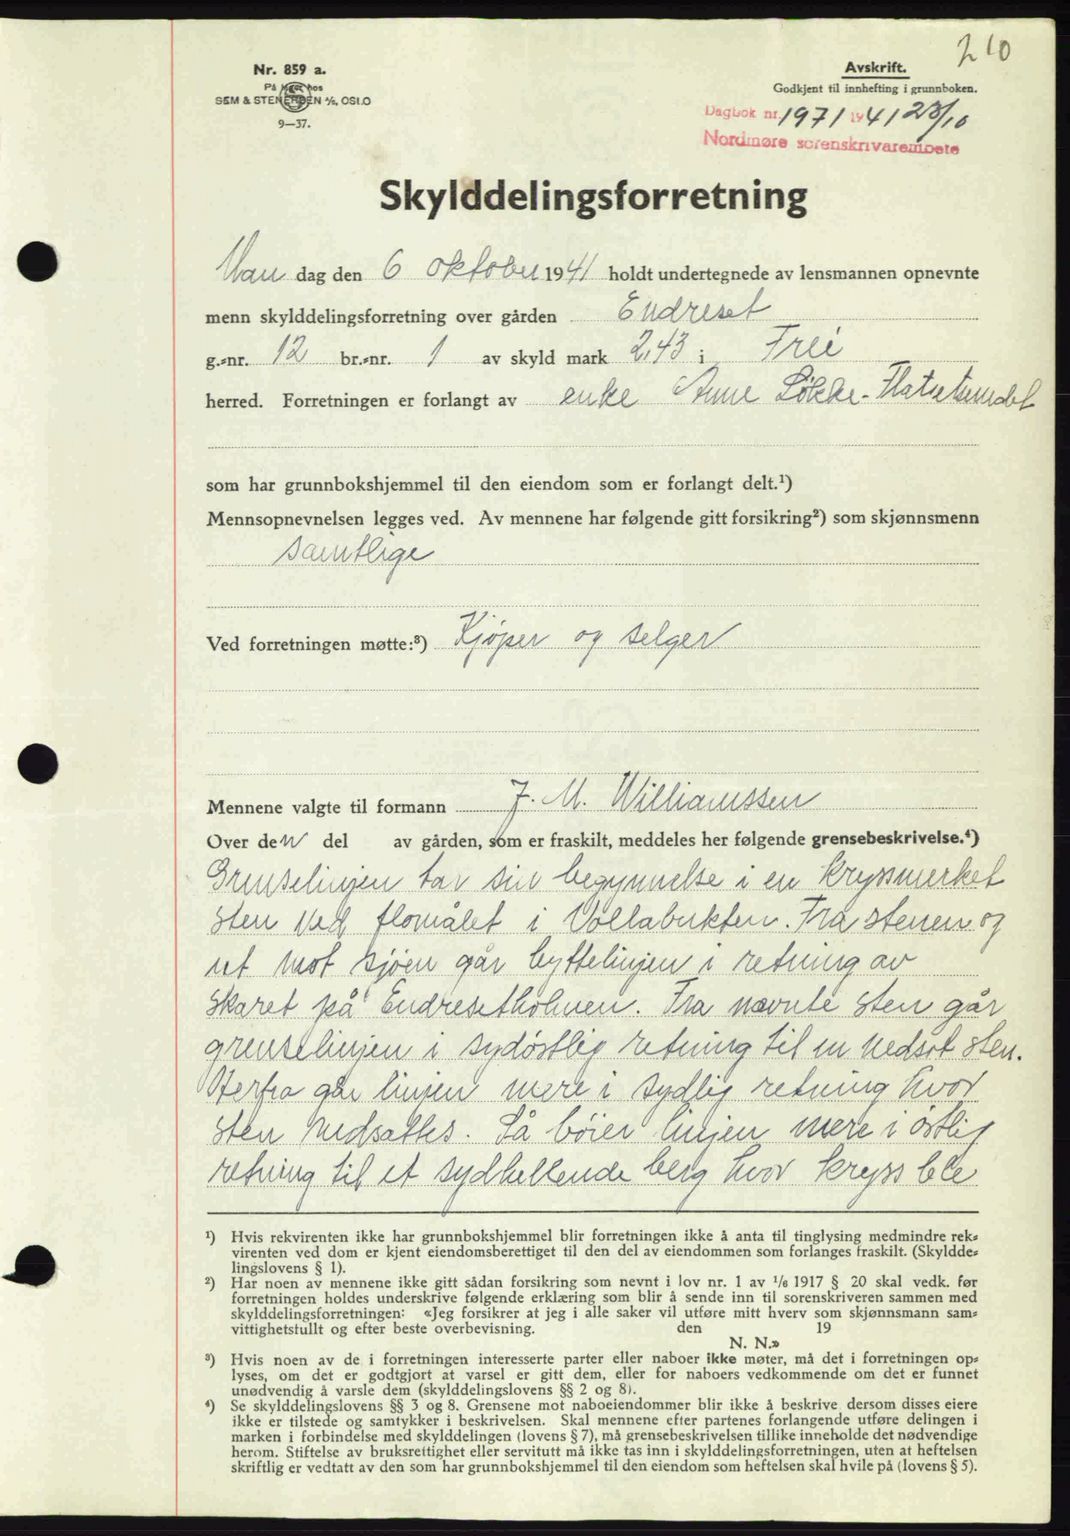 210
Nr. 859 a.
På lager hos
SEM & STENERSEN A/S, OSLO
9—37.
Avskrift.
Godkjent til innhefting i grunnboken.
Dagbok nr. 1971 1941 23/10
Nordmøre sorenskrivarembete
Skylddelingsforretning
Man dag den 6 oktober 1941 holdt undertegnede av lensmannen opnevnte
menn skylddelingsforretning over gården Endreset
g.-nr. 12 br.-nr. 1 av skyld mark 2,43 i Frei
herred. Forretningen er forlangt av enke Anne Løkke-Flatsetsundet
som har grunnbokshjemmel til den eiendom som er forlangt delt.¹)
Mennsopnevnelsen legges ved. Av mennene har følgende gitt forsikring²) som skjønnsmenn
samtlige
Ved forretningen møtte:³) Kjøper og selger
Mennene valgte til formann J. M. Williamssen
Over den del av gården, som er fraskilt, meddeles her følgende grensebeskrivelse.⁴)
Grenselinjen tar sin begynnelse i en kryssmerket
sten ved flomålet i Vollabukten. Fra stenen og
ut mot sjøen går byttelinjen i retning av
skaret på Endresetholmen. Fra nævnte sten går
grenselinjen i sydøstlig retning til en nedsat sten.
Herfra går linjen mere i sydlig retning hvor
sten nedsattes. Så bøier linjen mere i østlig
retning til et sydhellende berg hvor kryss ble
¹) Hvis rekvirenten ikke har grunnbokshjemmel blir forretningen ikke å anta til tinglysing medmindre rek-
virenten ved dom er kjent eiendomsberettiget til den del av eiendommen som forlanges fraskilt. (Skyldde-
lingslovens § 1).
²) Har noen av mennene ikke gitt sådan forsikring som nevnt i lov nr. 1 av 1/6 1917 § 20 skal vedk. før
forretningen holdes underskrive følgende erklæring som blir å sende inn til sorenskriveren sammen med
skylddelingsforretningen: «Jeg forsikrer at jeg i alle saker vil utføre mitt hverv som skjønnsmann sam-
vittighetstullt og efter beste overbevisning. den 19
N. N.»
³) Hvis noen av de i forretningen interesserte parter eller naboer ikke møter, må det i forretningen op-
lyses, om det er godtgjort at varsel er gitt dem, eller for naboers vedkommende om det er funnet
unødvendig å varsle dem (skylddelingslovens §§ 2 og 8).
⁴) Se skylddelingslovens §§ 3 og 8. Grensene mot naboeiendommer blir ikke å beskrive dersom disses eiere
ikke er tilstede og samtykker i beskrivelsen. Skal mennene efter partenes forlangende utføre delingen i
marken i forbindelse med skylddelingen (lovens § 7), må grensebeskrivelsen tillike inneholde det nødvendige
herom. Stiftelse av bruksrettighet eller servitutt må ikke tas inn i skylddelingsforretningen, uten at heftelsen
skriftlig er vedtatt av den som har grunnbokshjemmel til den eiendom som heftelsen skal hvile på (lovens § 5).